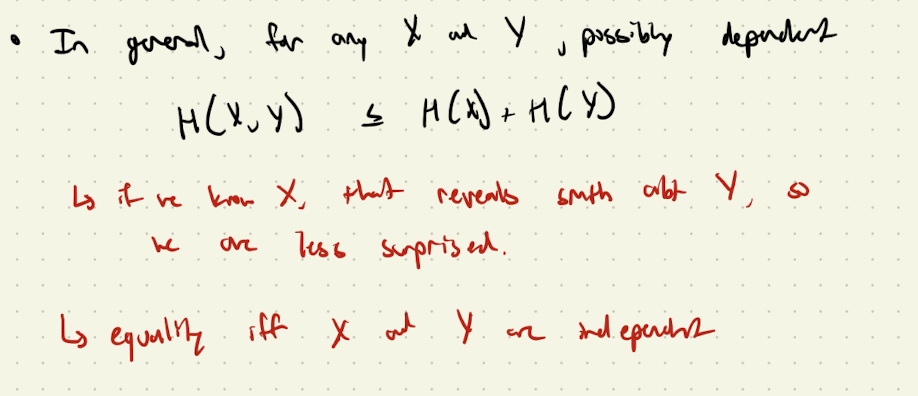 • In general, for any X and Y, possibly dependent
H(X, Y) ≤ H(X) + H(Y)
↳ if we know X, that reveals smth abt Y, so
we are less surprised.
↳ equality iff X and Y are independent